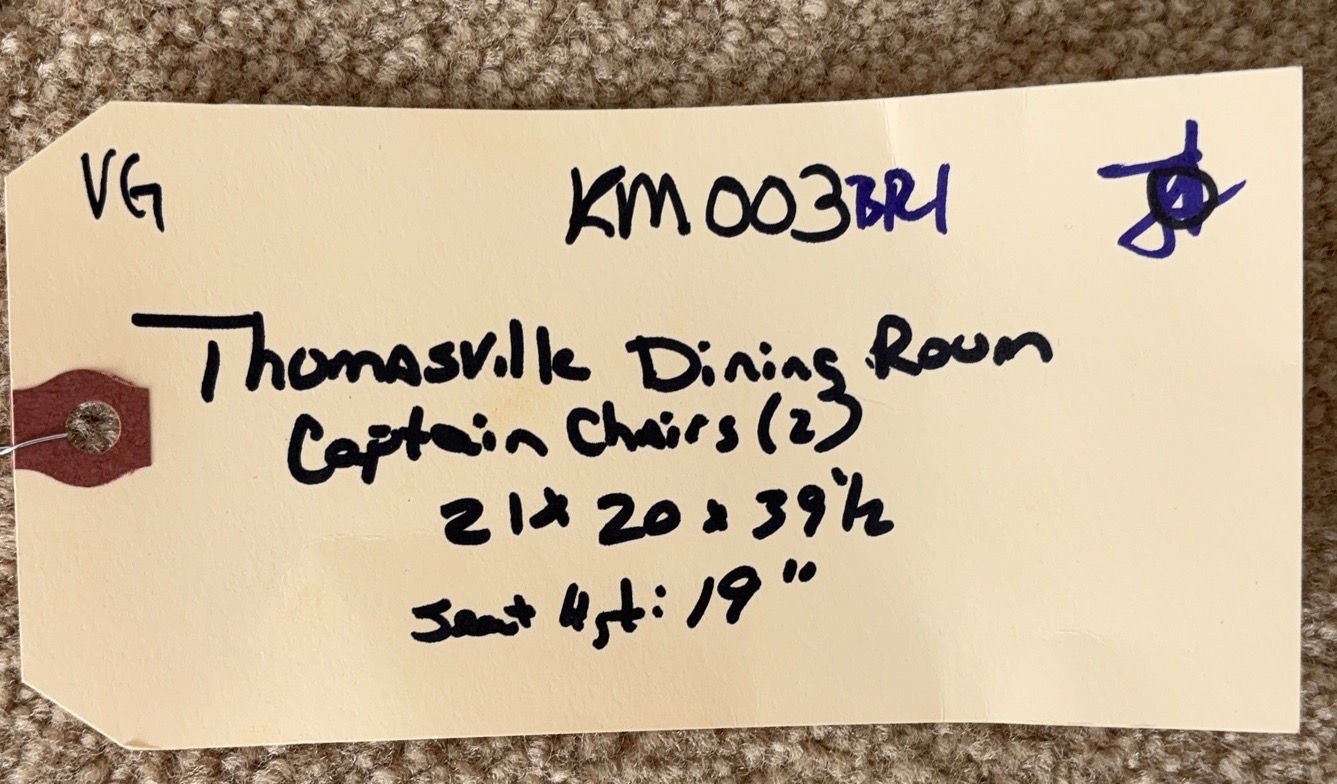 VG KM003BR1
Thomasville Dining Room
Captain Chairs (2)
21 x 20 x 39 1/2
Seat Hgt: 19"